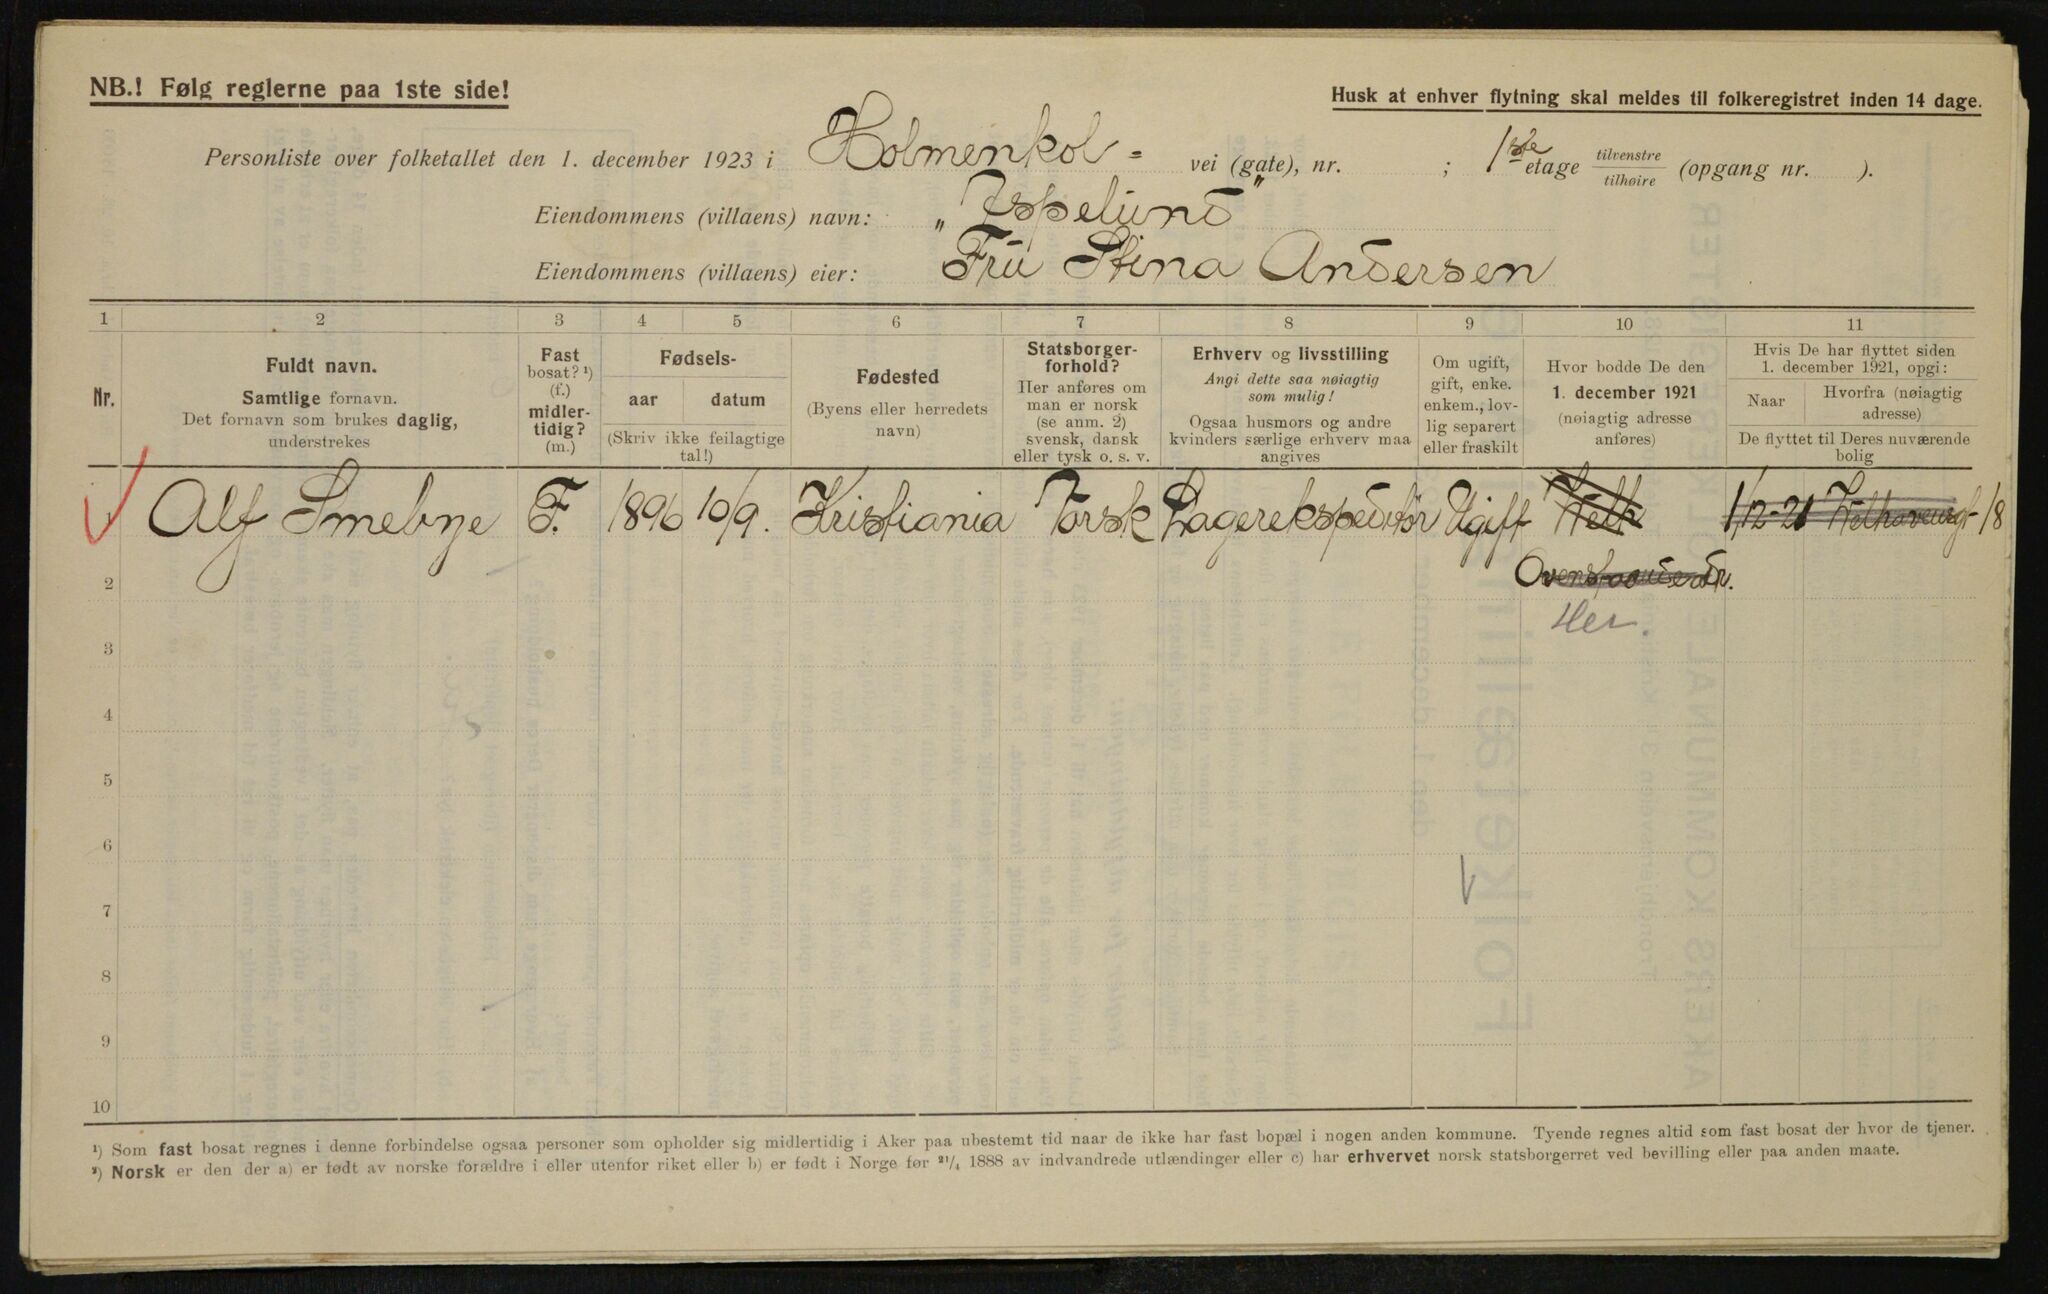 NB.! Følg reglerne paa 1ste side!
Husk at enhver flytning skal meldes til folkeregistret inden 14 dage.
Personliste over folketallet den 1. december 1923 i Holmenkol- vei (gate), nr. ; 1ste etage tilvenstre tilhøire (opgang nr. ).
Eiendommens (villaens) navn: „Espelund"
Eiendommens (villaens) eier: Fru Stina Andersen
1 2 3 4 5 6 7 8 9 10 11
Nr.
Fuldt navn.
Samtlige fornavn.
Det fornavn som brukes daglig,
understrekes
Fast
bosat? ¹)
(f.)
midler-
tidig?
(m.)
Fødsels-
aar datum
(Skriv ikke feilagtige
tal!)
Fødested
(Byens eller herredets
navn)
Statsborger-
forhold?
Her anføres om
man er norsk
(se anm. 2)
svensk, dansk
eller tysk o. s. v.
Erhverv og livsstilling
Angi dette saa nøiagtig
som mulig!
Ogsaa husmors og andre
kvinders særlige erhverv maa
angives
Om ugift,
gift, enke.
enkem., lov-
lig separert
eller fraskilt
Hvor bodde De den
1. december 1921
(nøiagtig adresse
anføres)
Hvis De har flyttet siden
1. december 1921, opgi:
Naar
Hvorfra (nøiagtig
adresse)
De flyttet til Deres nuværende
bolig
1 Alf Smebye F. 1896 10/9. Kristiania Norsk Lagerekspeditør Ugift 1/12-21 Welhavensgt 18
2
Her.
3
4
5
6
7
8
9
10
¹) Som fast bosat regnes i denne forbindelse ogsaa personer som opholder sig midlertidig i Aker paa ubestemt tid naar de ikke har fast bopæl i nogen anden kommune. Tyende regnes altid som fast bosat der hvor de tjener.
²) Norsk er den der a) er født av norske forældre i eller utenfor riket eller b) er født i Norge før ²¹/₄ 1888 av indvandrede utlændinger eller c) har erhvervet norsk statsborgerret ved bevilling eller paa anden maate.